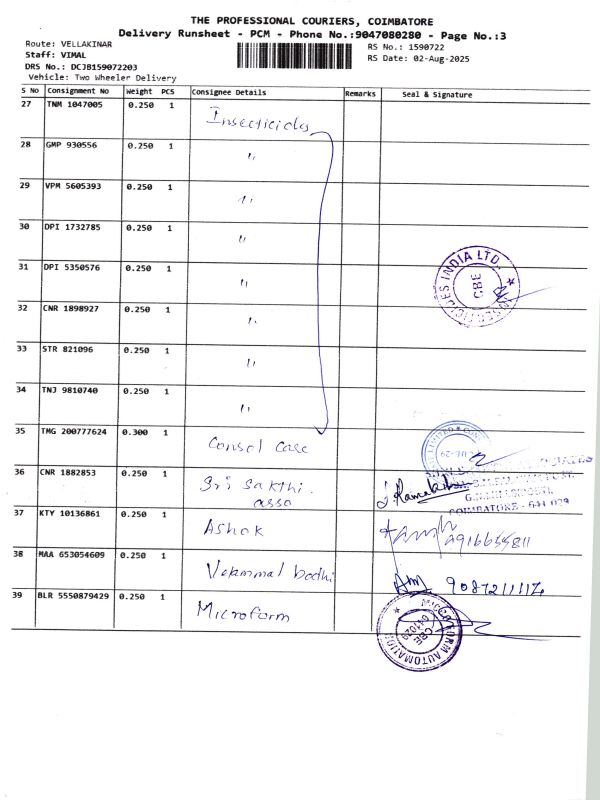 THE PROFESSIONAL COURIERS, COIMBATORE
Delivery Runsheet - PCM - Phone No.:9047080280 - Page No.:3
Route: VELLAKINAR
RS No.: 1590722
Staff: VIMAL
RS Date: 02-Aug-2025
DRS No.: DCJB159072203
Vehicle: Two Wheeler Delivery
S No Consignment No Weight PCS Consignee Details Remarks Seal & Signature
27 TNM 1047005 0.250 1 Insecticides
28 GMP 930556 0.250 1 "
29 VPM 5605393 0.250 1 "
30 DPI 1732785 0.250 1 "
31 DPI 5350576 0.250 1 "
INDIA LTD. CBE
32 CNR 1898927 0.250 1 "
33 STR 821096 0.250 1 "
34 TNJ 9810740 0.250 1 "
35 TMG 200777624 0.300 1 Consol Case
36 CNR 1882853 0.250 1 Sri Sakthi.
asso
COIMBATORE - 641 029
37 KTY 10136861 0.250 1 Ashok
38 MAA 653054609 0.250 1 Velammal bodhi
39 BLR 5550879429 0.250 1 Microform
MICRO FORM AUTOMATION CBE 641029